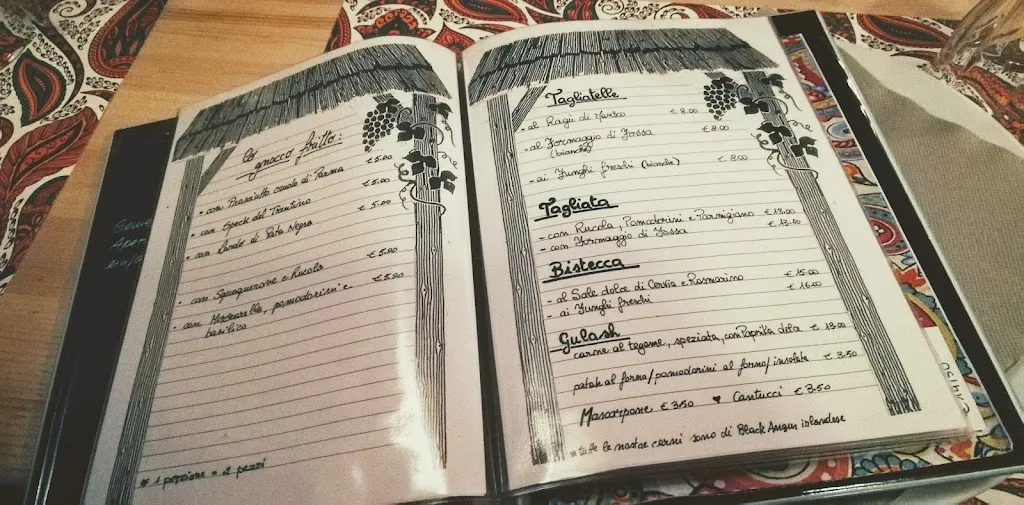 gnocco fritto:
• con Prosciutto crudo di Parma € 5.00
• con Speck del Trentino € 5.00
• con Lardo di Pata Negra € 5.00
• con Squaquerone e Rucola € 5.00
• con Mozzarella, pomodorini e € 5.00
basilico
* 1 porzione = 2 pezzi
Tagliatelle
- al Ragù di Manzo € 8.00
- al Formaggio di Fossa € 8.00
(bianche)
- ai Funghi freschi (bianche) € 8.00
Tagliata
- con Rucola, Pomodorini e Parmigiano € 13.00
- con Formaggio di Fossa € 13.00
Bistecca
- al Sale dolce di Cervia e Rosmarino € 15.00
- ai Funghi freschi € 16.00
Gulash
carne al tegame, speziata, con Paprika dolce € 13.00
patate al forno/pomodorini al forno/insalata € 3.50
Mascarpone € 3.50 ♥ Cantucci € 3.50
* tutte le nostre carni sono di Black Angus irlandese